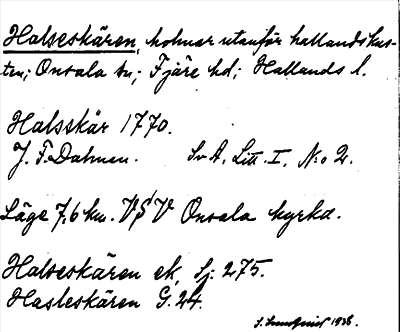 Halseskären, holmar utanför hallandskus-
ten; Onsala sn; Fjäre hd; Hallands l.
Halsskär 1770.
J. F. Dahman. Sv A. Litt. I. N:o 2.
Läge 7,6 km. VSV Onsala kyrka.
Halseskären ek, Sj: 275.
Hasleskären G. 24.
1938.